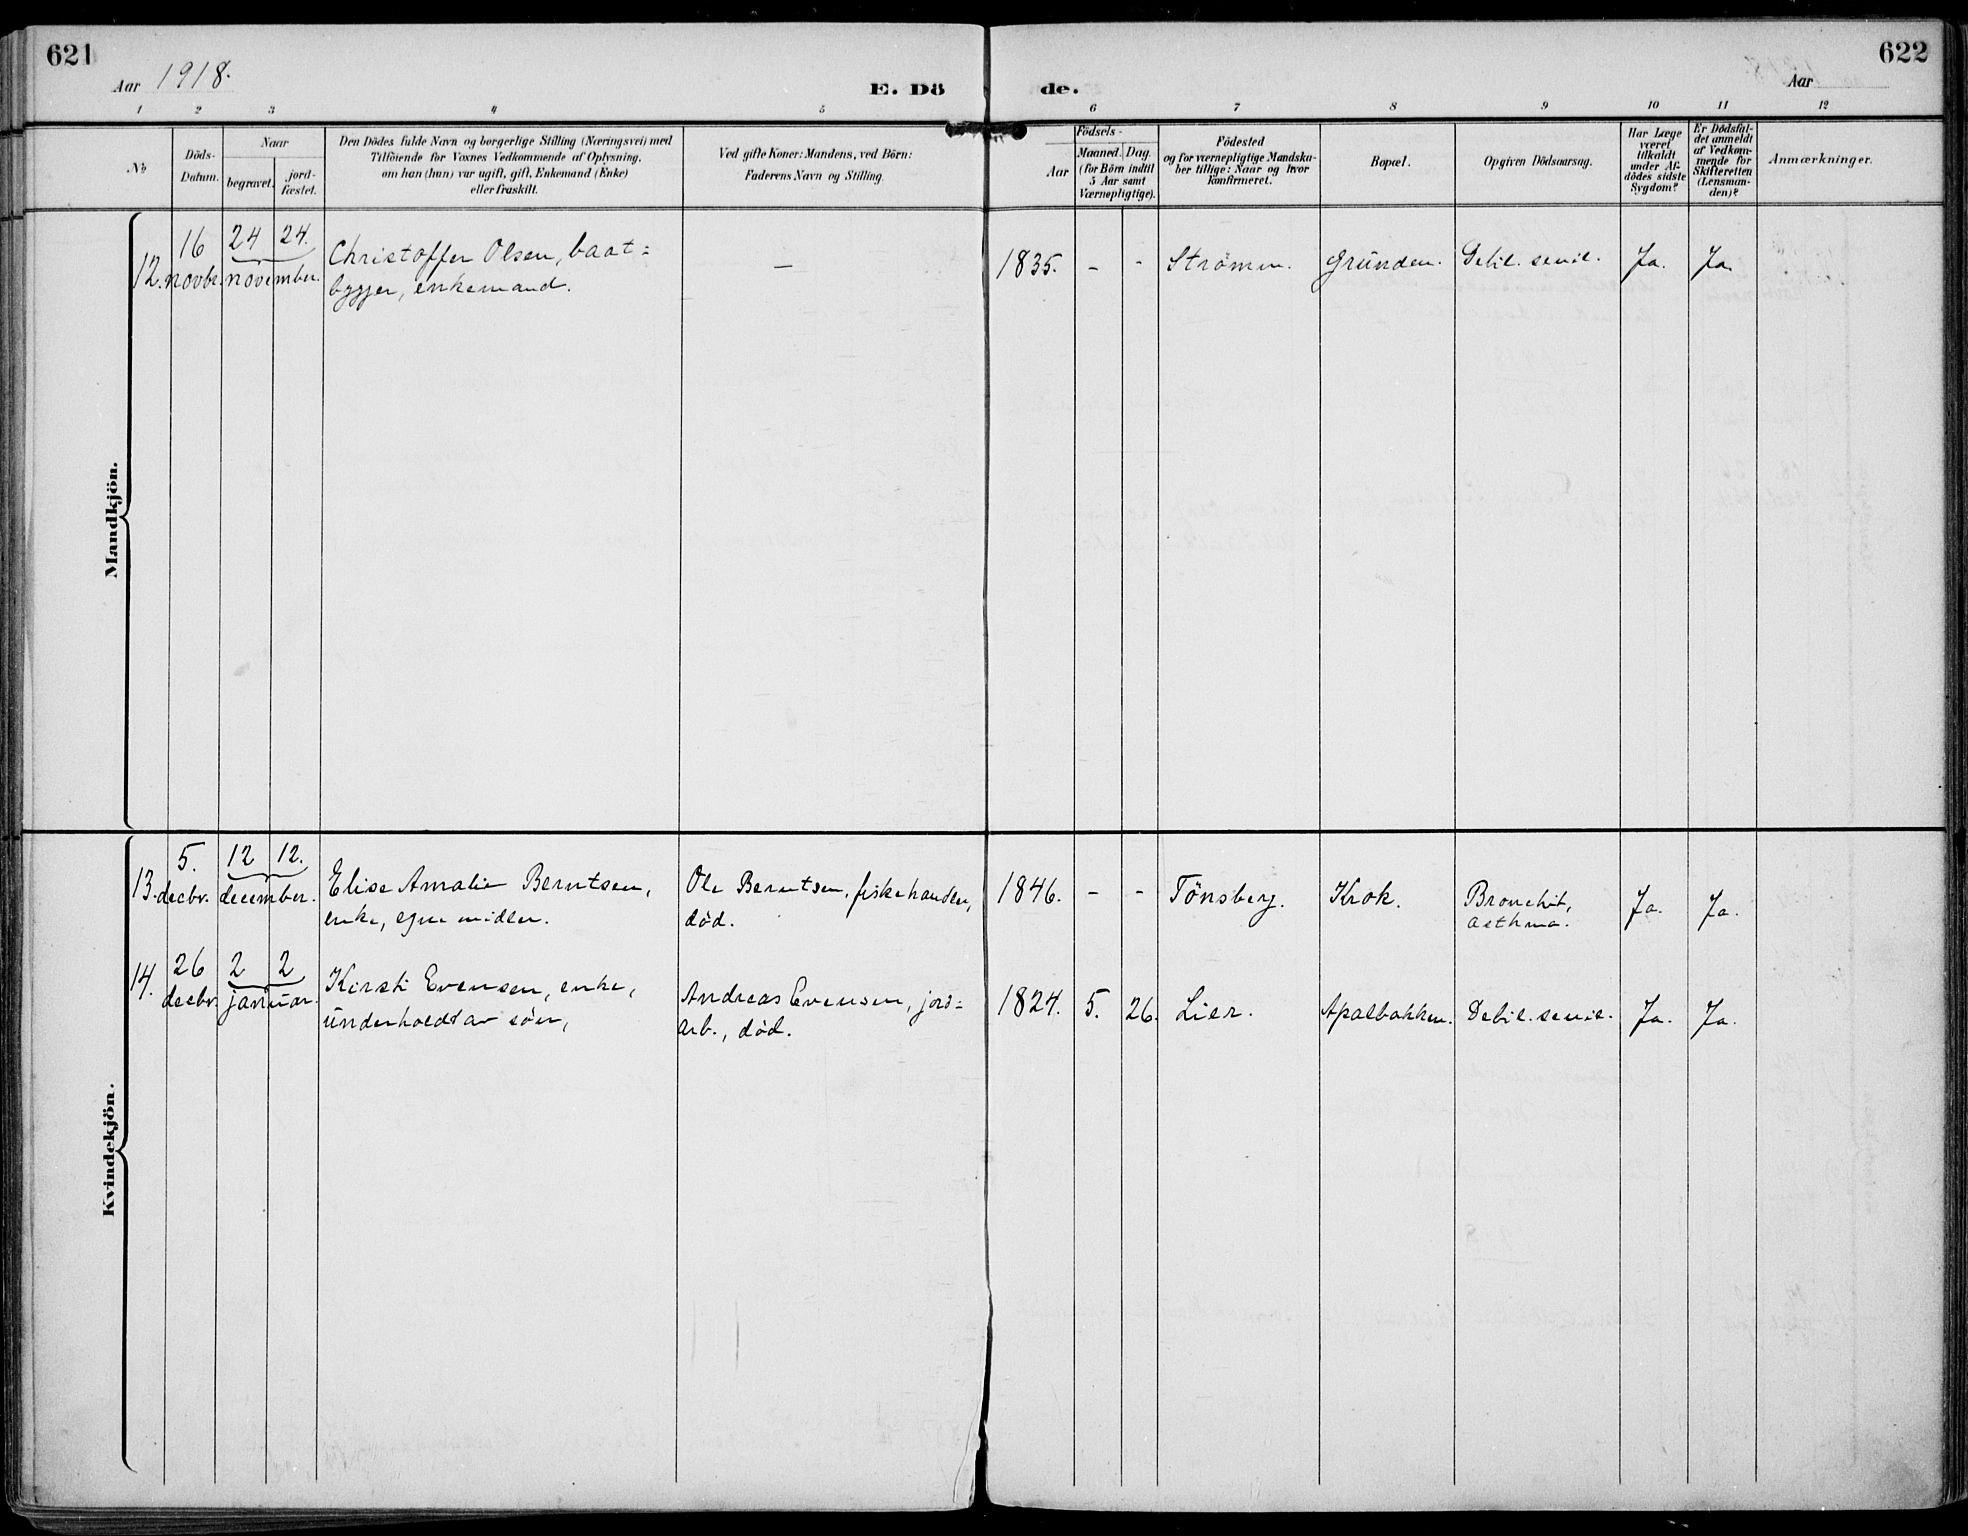 621
Aar 1918.
E. Dö
de.
Aar
622
1 2 3 4 5 6 7 8 9 10 11 12
No
Döds-
Datum.
Naar
begravet.
jord-
fæstet.
Den Dödes fulde Navn og borgerlige Stilling (Næringsvei) med
Tilföiende for Voxnes Vedkommende af Oplysning,
om han (hun) var ugift, gift, Enkemand (Enke)
eller fraskilt.
Ved gifte Koner: Mandens, ved Börn:
Faderens Navn og Stilling.
Födsels-
Aar
Maaned. Dag.
(for Börn indtil
5 Aar samt
Værnepligtige).
Födested
og for værnepligtige Mandska-
ber tillige: Naar og hvor
konfirmeret.
Bopæl.
Opgiven Dödsaarsag.
Har Læge
været
tilkaldt
under Af-
dödes sidste
Sygdom?
Er Dødsfal-
det anmeldt
af Vedkom-
mende for
Skifteretten
(Lensman-
den)?
Anmærkninger.
Mandkjön.
12. 16 novbr. 24 24. november.
Christoffer Olsen, baat=
bygger, enkemand.
—
1835. - - Strömm. Grunden. Debil. senil. Ja. Ja.
Kvindekjön.
13. 5. decbr. 12 12. december.
Elise Amalie Berntsen,
enke, egne midler.
Ole Berntsen, fiskehandler,
död.
1846. - - Tönsberg. Krok. Bronchit,
asthma. Ja. Ja.
14. 26 decbr. 2 2 januar.
Kirsti Evensen, enke,
underholdt av sön,
Andreas Evensen, jord=
arb., död.
1824. 5. 26. Lier. Apalbakken. Debil. senil. Ja. Ja.